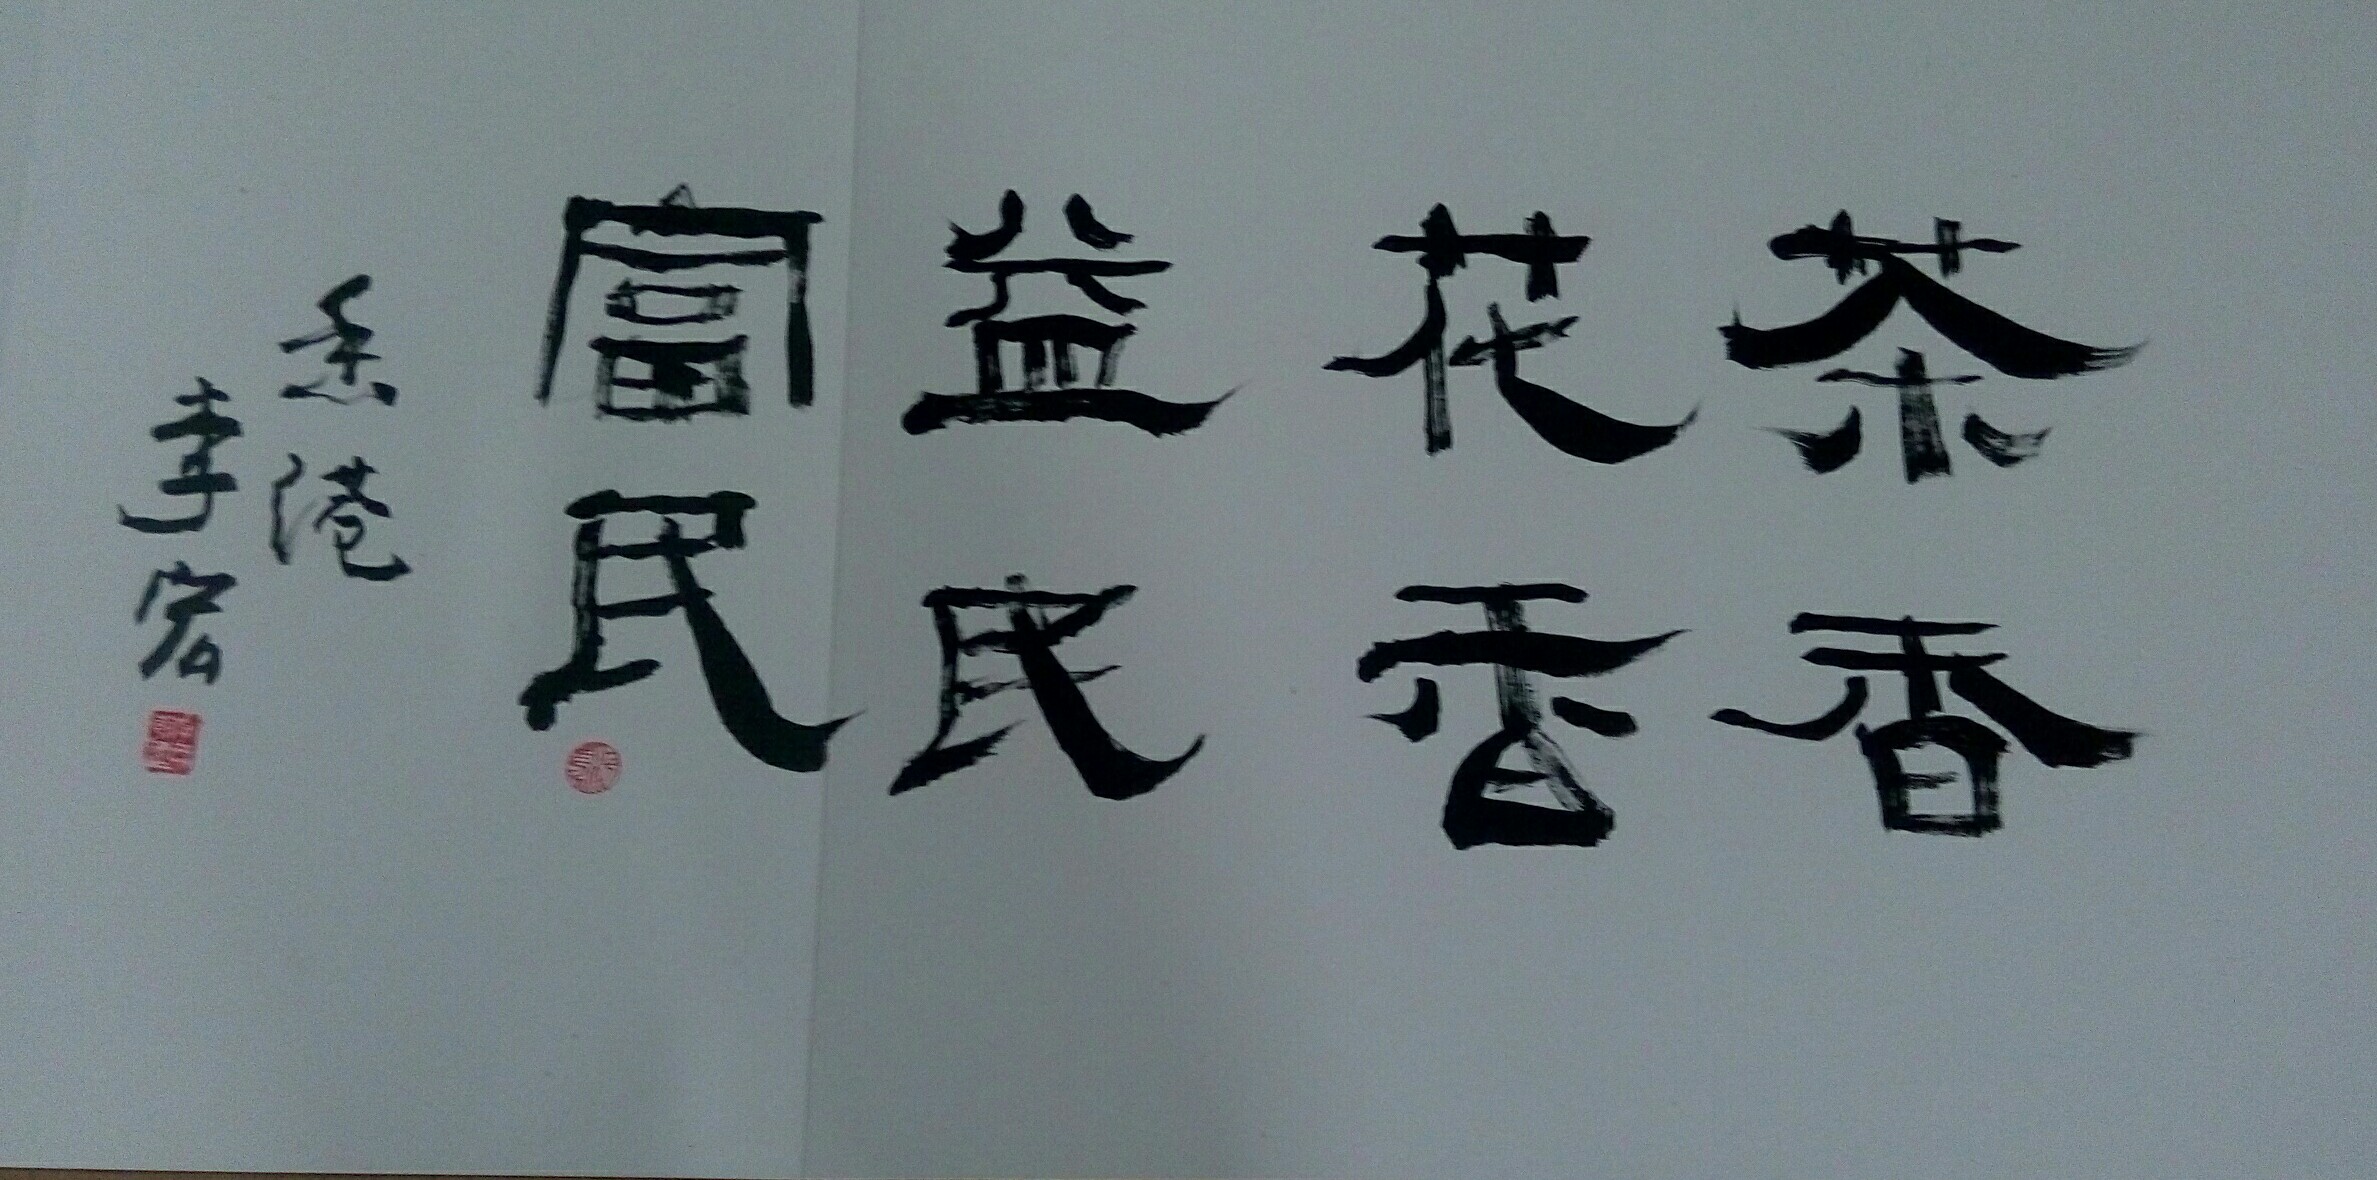 茶香
花香
益民
富民
香港
李宏